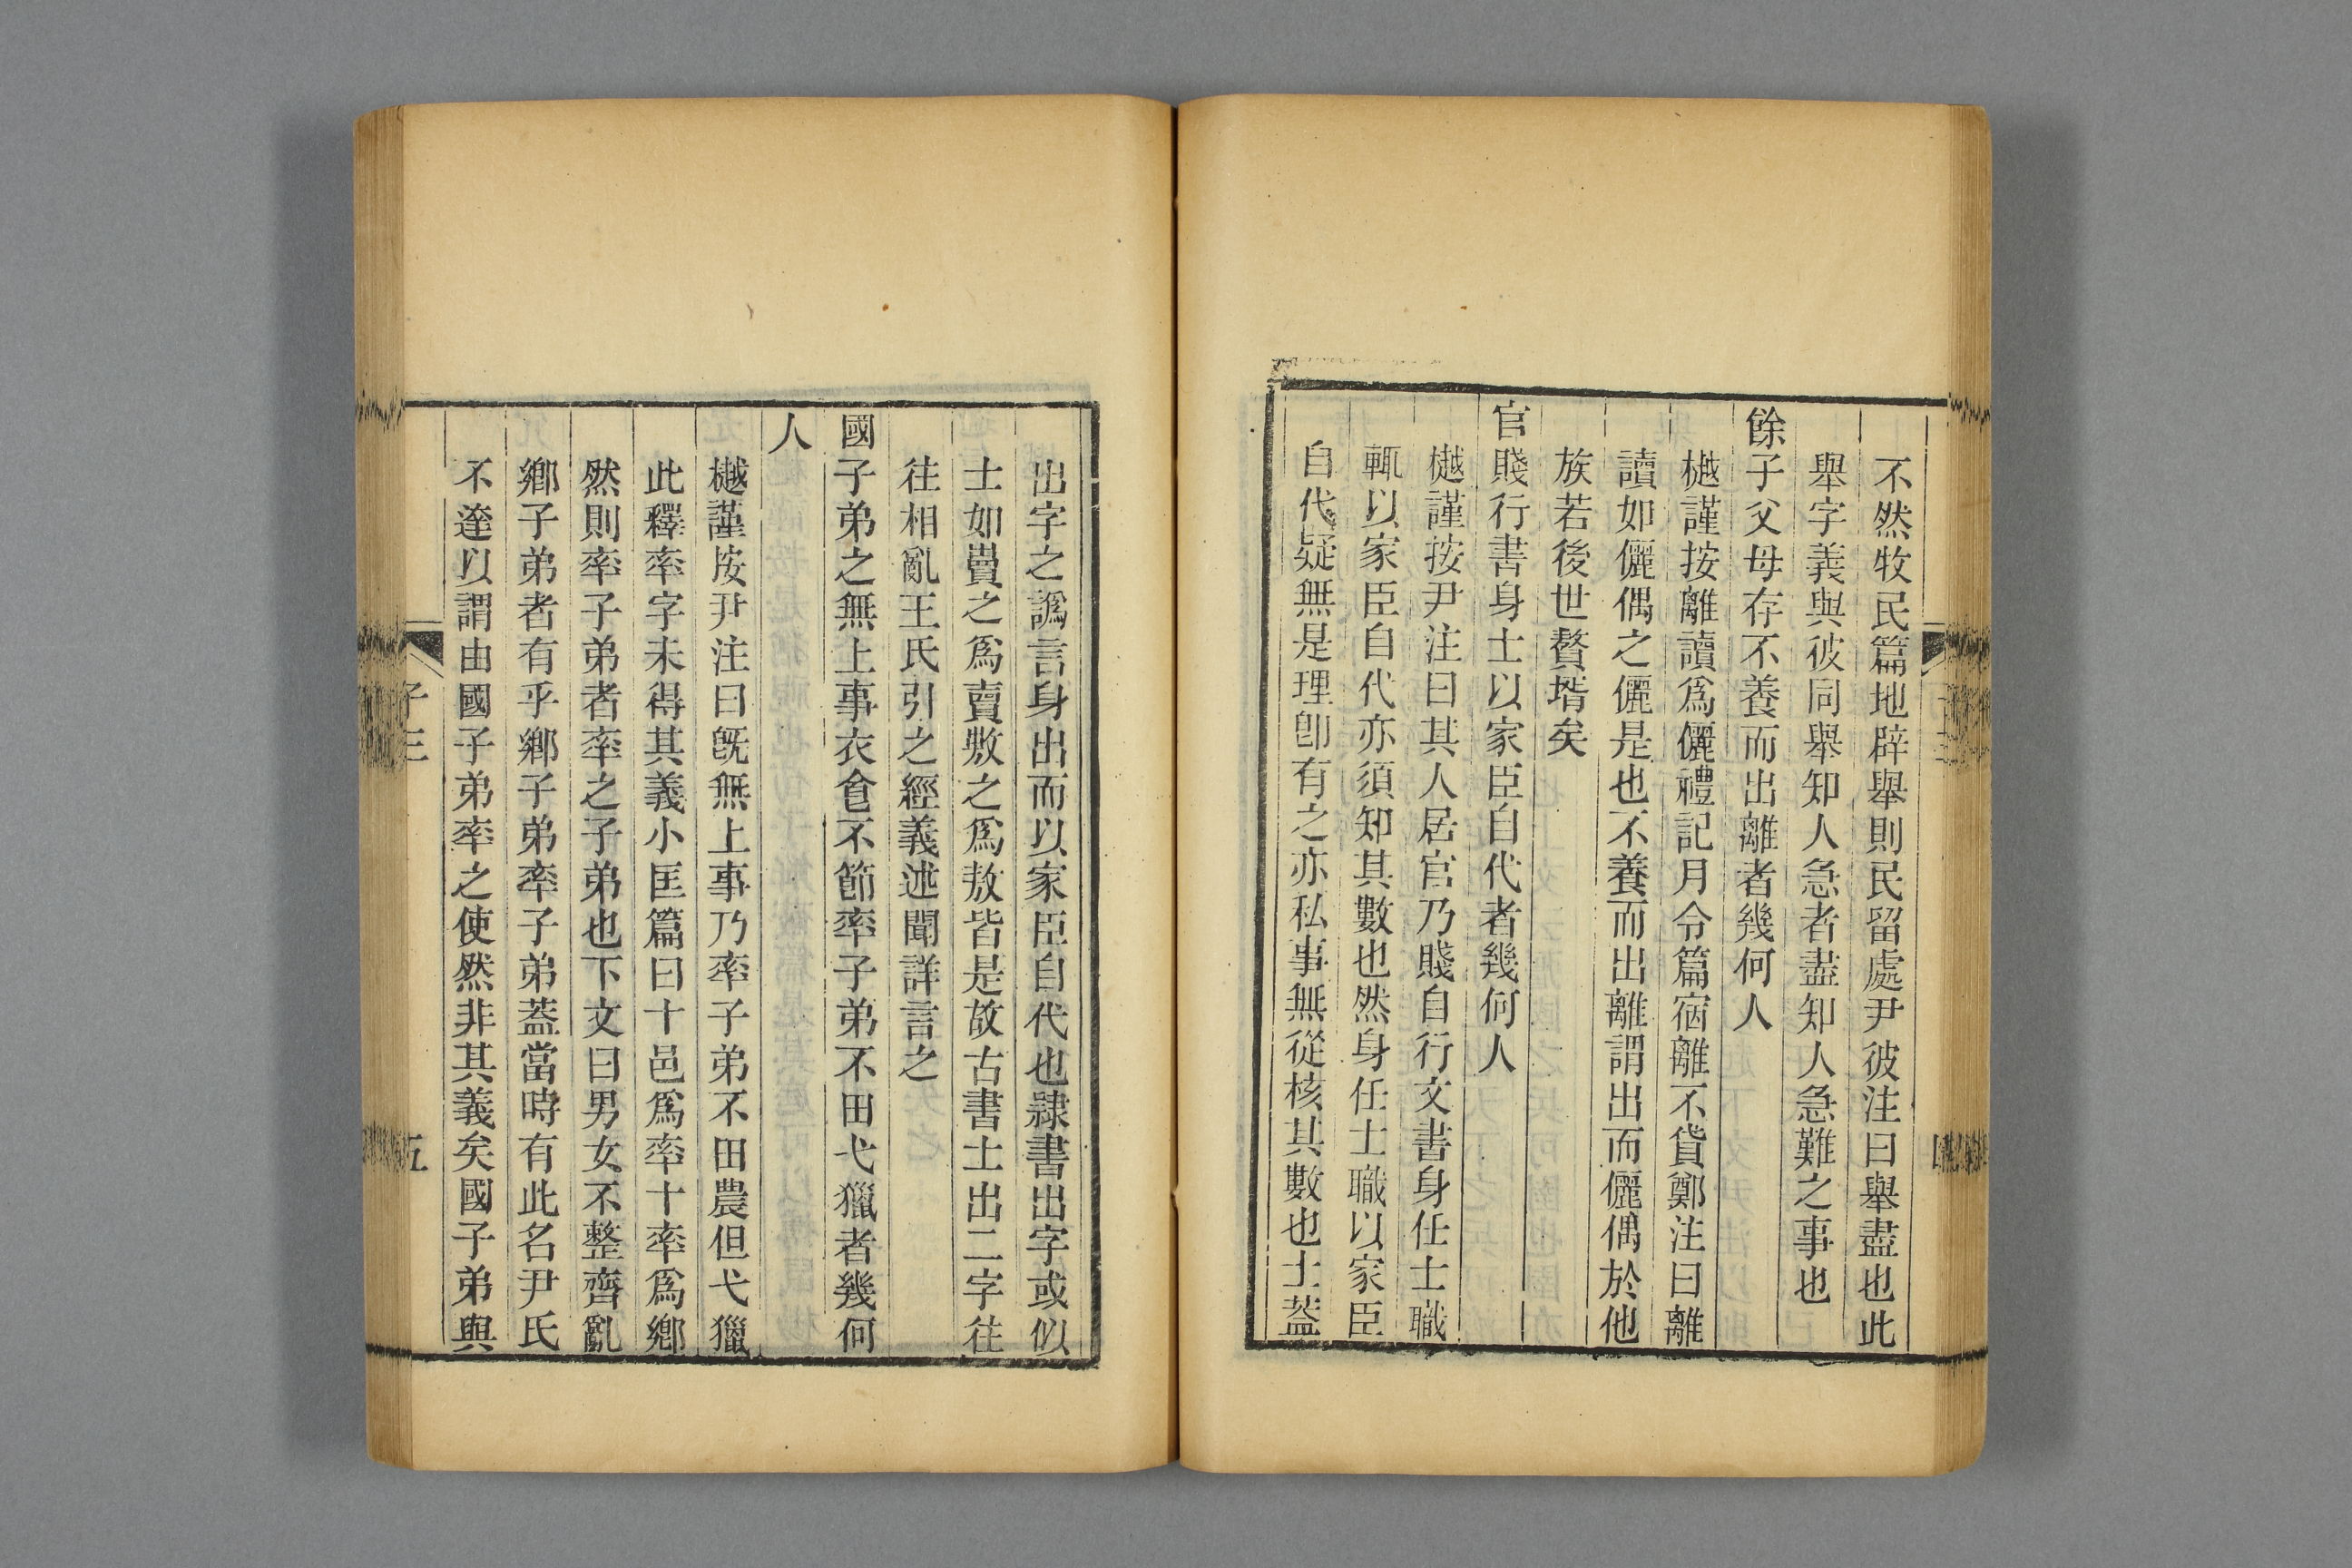 不然牧民篇地辟舉則民留處尹彼注曰舉盡也此
舉字義與彼同舉知人急者盡知人急難之事也
餘子父母存不養而出離者幾何人
樾謹按離讀爲儷禮記月令篇宿離不貸鄭注曰離
讀如儷偶之儷是也不養而出離謂出而儷偶於他
族若後世贅壻矣
官賤行書身士以家臣自代者幾何人
樾謹按尹注曰其人居官乃賤自行文書身任士職
輒以家臣自代亦須知其數也然身任士職以家臣
自代疑無是理卽有之亦私事無從核其數也士蓋
出字之譌言身出而以家臣自代也隷書出字或似
士如賣之爲賣敖之爲敖皆是故古書士出二字往
往相亂王氏引之經義述聞詳言之
國子弟之無上事衣食不節率子弟不田弋獵者幾何
人
樾謹按尹注曰旣無上事乃率子弟不田農但弋獵
此釋率字未得其義小匡篇曰十邑爲率十率爲鄕
然則率子弟者率之子弟也下文曰男女不整齊亂
鄕子弟者有乎鄕子弟率子弟蓋當時有此名尹氏
不達以謂由國子弟率之使然非其義矣國子弟與
子三
五